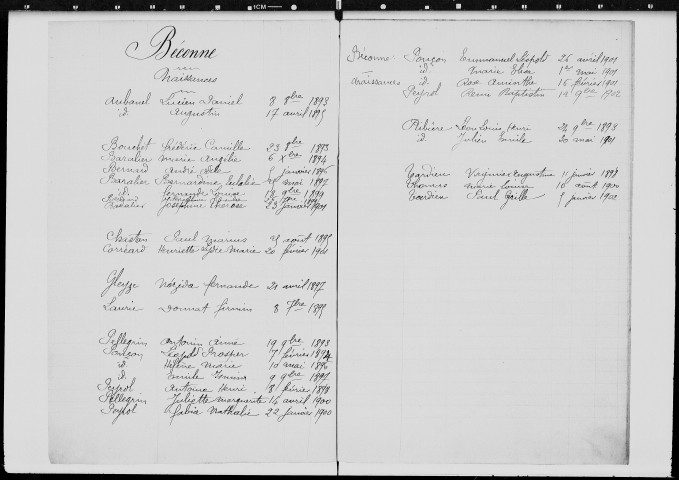 Béconne
Naissances
Aubanel Lucien Daniel 8 8bre 1893
d Augustin 17 avril 1895
Bouchet Frédéric Camille 23 9bre 1893
Baratier Marie Angèle 6 Xbre 1894
Bernard André 5 janvier 1896
Baratier Bernardine mai 1897
d. Fernande Louise 19 9bre 1899
Baratier Joséphine Thérèse 23 janvier 1901
Chastan Paul Marius 25 août 1895
Corréard Henriette Marie 20 février 1901
Gleyze Fernande 21 avril 1897
Laurie Donnat Firmin 8 7bre 1895
Pellegrin Antonin Aimé 19 9bre 1893
Ponçon Léopold Prosper 17 février 1894
d. Hélène Marie 10 mai 1896
d. Emile 9 9bre 1897
Peyrol Antoine Henri 18 février 1898
Pellegrin Juliette Marguerite 16 avril 1900
Peyrol Maria Nathalie 22 janvier 1900
Béconne Ponçon Emmanuel Léopold 26 avril 1901
d. Marie Elisa 1er mai 1901
Naissances d. Rose 16 février 1901
Peyrol Remi Baptistin 12 9bre 1902
Ribière Louis Henri 24 9bre 1893
d. Julien Emile 20 mai 1901
Tardieu Virginie Augustine 11 janvier 1898
Thomas Marie Louise 10 août 1900
Tardieu Paul 5 janvier 1902